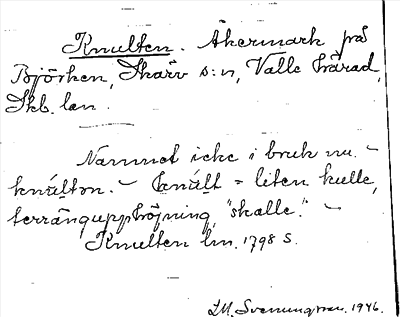 Knulten. Åkermark på
Björken, Skärv s:n, Valle härad,
Skb. län.
Namnet icke i bruk nu. –
knúltən. – knúlt = liten kulle,
terrängupphöjning, "skalle." –
Knulten lm. 1798 S.
LM. Svenungsson. 1946.